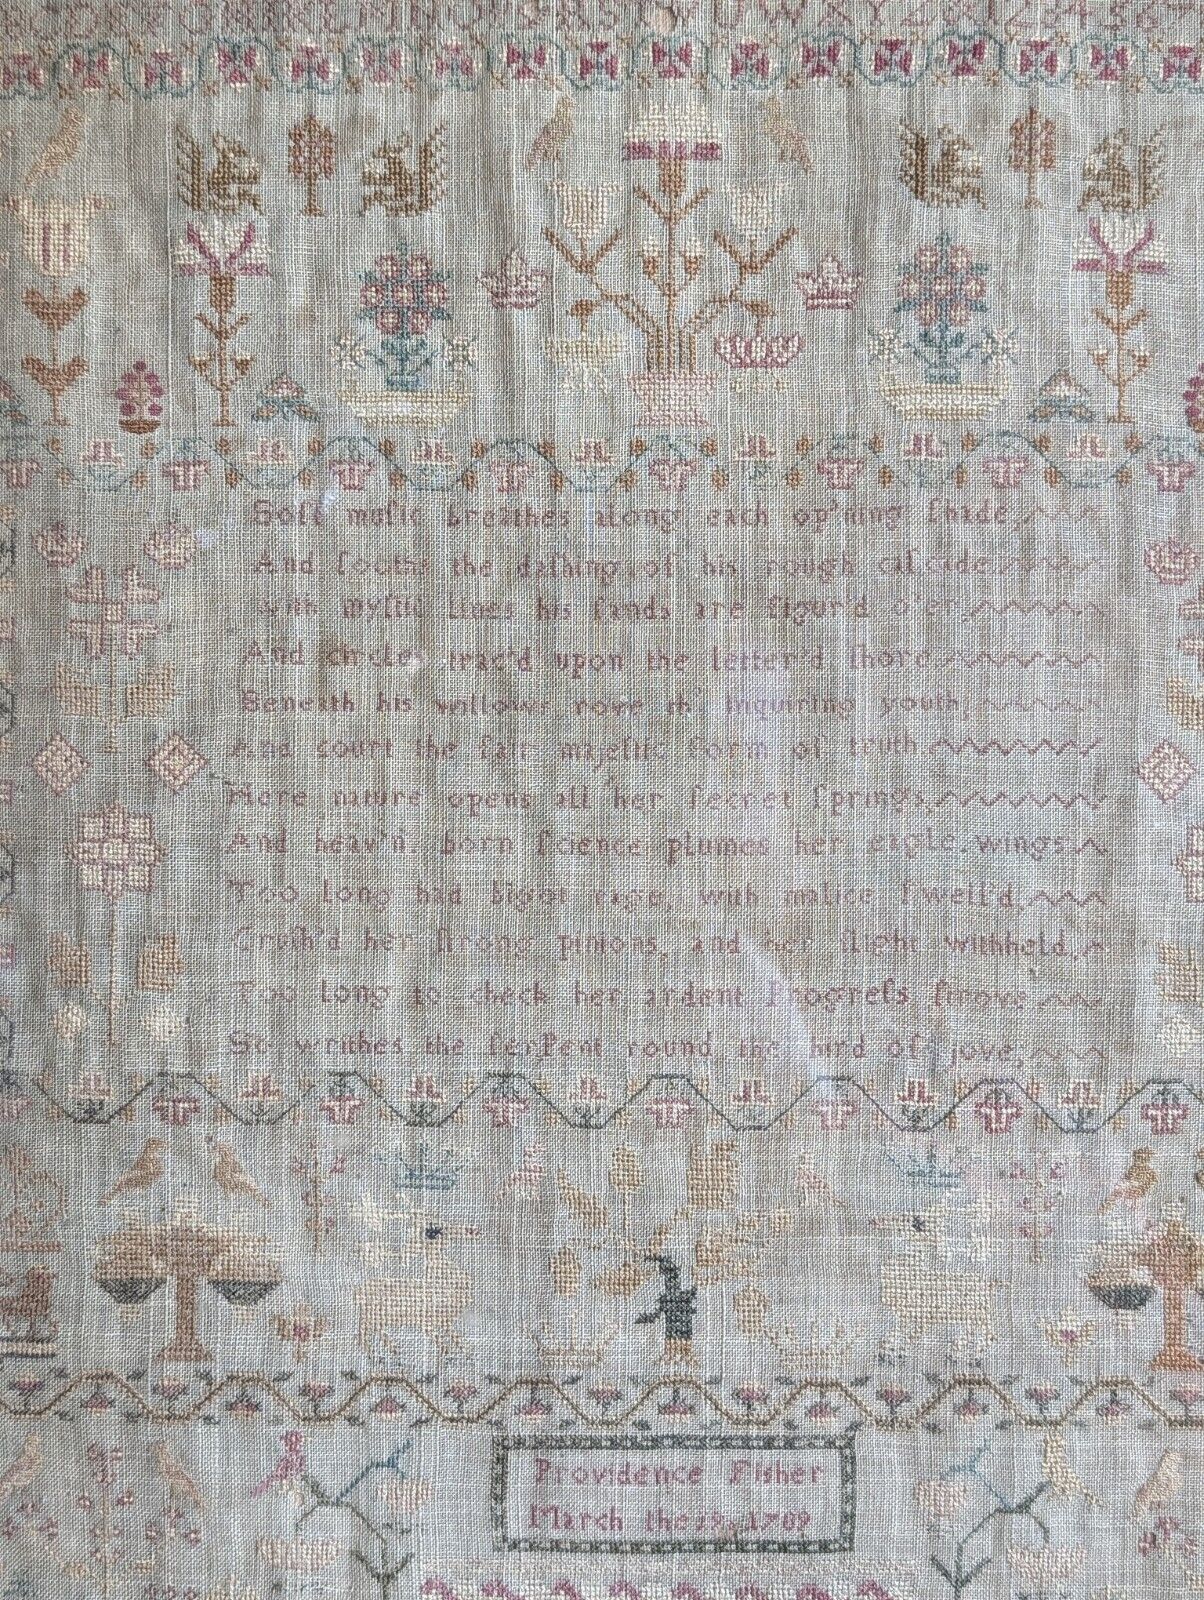 R S T V U W X Y Z & 1 2 3 4 5 6 7
Soft muſic breathes along each op'ning ſhade,
And ſooths the daſhing of his rough caſcade
With myſtic lines his ſands are figur'd o'er
And circles trac'd upon the letter'd ſhore
Beneath his willows rove th' inquiring youth,
And court the fair majeſtic form of truth
Here nature opens all her ſecret ſprings,
And heav'n born ſcience plumes her eagle wings
Too long had bigot rage, with malice ſwell'd,
Cruſh'd her ſtrong pinions, and her flight withheld,
Too long to check her ardent Progreſs ſtrove
So writhes the ſerPent round the bird of Jove,
Providence Fisher
March the 19, 1709